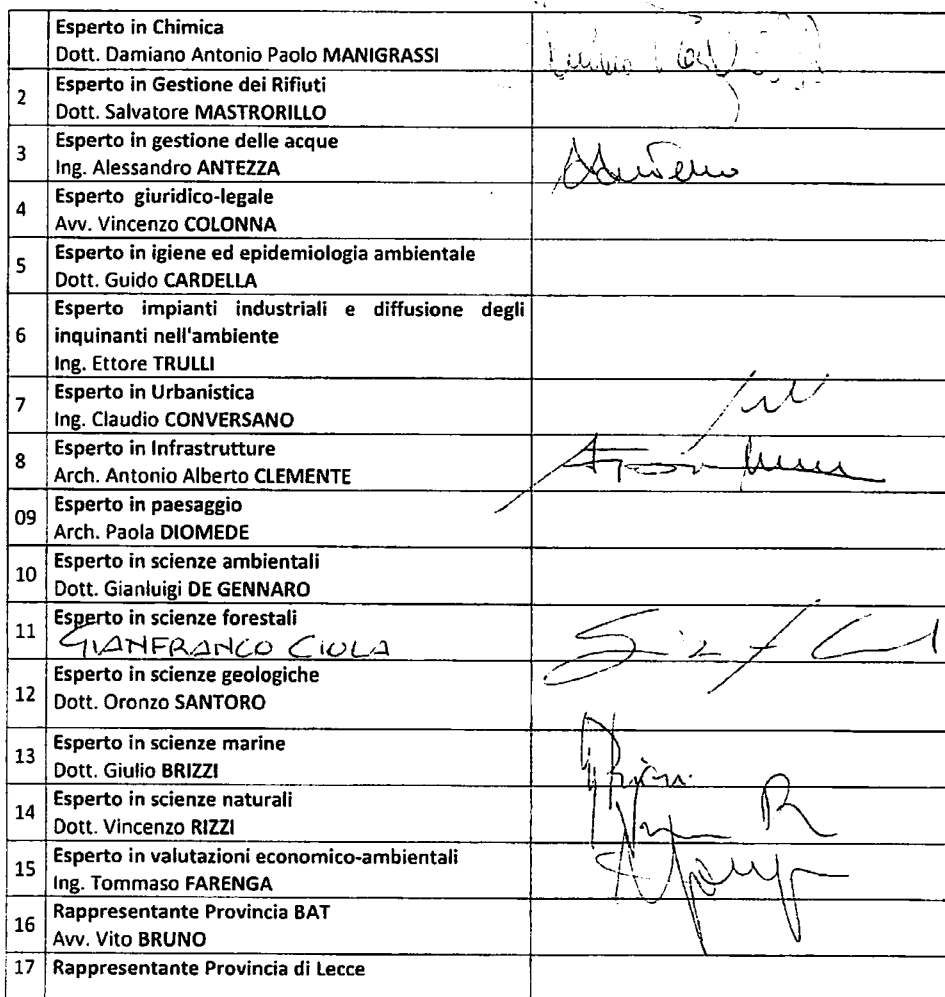 Esperto in Chimica
Dott. Damiano Antonio Paolo MANIGRASSI
2 Esperto in Gestione dei Rifiuti
Dott. Salvatore MASTRORILLO
3 Esperto in gestione delle acque
Ing. Alessandro ANTEZZA
4 Esperto giuridico-legale
Avv. Vincenzo COLONNA
5 Esperto in igiene ed epidemiologia ambientale
Dott. Guido CARDELLA
6 Esperto impianti industriali e diffusione degli
inquinanti nell'ambiente
Ing. Ettore TRULLI
7 Esperto in Urbanistica
Ing. Claudio CONVERSANO
8 Esperto in Infrastrutture
Arch. Antonio Alberto CLEMENTE
09 Esperto in paesaggio
Arch. Paola DIOMEDE
10 Esperto in scienze ambientali
Dott. Gianluigi DE GENNARO
11 Esperto in scienze forestali
GIANFRANCO CIOLA
12 Esperto in scienze geologiche
Dott. Oronzo SANTORO
13 Esperto in scienze marine
Dott. Giulio BRIZZI
14 Esperto in scienze naturali
Dott. Vincenzo RIZZI
15 Esperto in valutazioni economico-ambientali
Ing. Tommaso FARENGA
16 Rappresentante Provincia BAT
Avv. Vito BRUNO
17 Rappresentante Provincia di Lecce